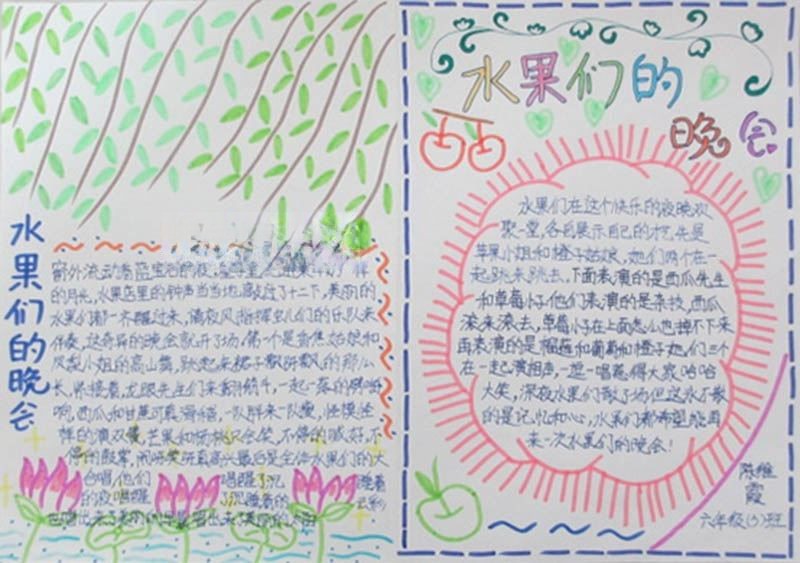 水果们的晚会
窗外流动着
的月光,水果店里的钟声当当地敲过了十二下,美丽的
水果们都一齐醒过来,请夜风指挥虫儿们的乐队来
伴奏,这奇异的晚会就开了场,第一个是香蕉姑娘和
凤梨小姐的高山舞,跳起来裙子飘呀飘的那么
长,紧接着,龙眼先生们来翻筋斗,一起一落的
响,西瓜和甘蔗可真滑稽,一队胖来一队瘦,怪模怪
样的演双簧,芒果和杨桃只会笑,不停的喊好,不
停的鼓掌,闹呀笑呀真高兴最后是全体水果们的大
合唱,他们
唱醒了沉
的夜唱醒
了沉睡着的
水果们的
晚会
水果们在这个快乐的夜晚欢
聚一堂,各自展示自己的才艺,先是
苹果小姐和橙子姑娘,她们两个在一
起跳来跳去,下面表演的是西瓜先生
和草莓小子,他们表演的是杂技,西瓜
滚来滚去,草莓小子在上面怎么也掉不下来
再表演的是榴莲和葡萄和橙子她们三个
在一起演相声,一逗一唱惹得大家哈哈
大笑,深夜水果们散了场但这永不散
的是记忆和心,水果们都希望能再
来一次水果们的晚会!
陈维
霞
六年级(3)班